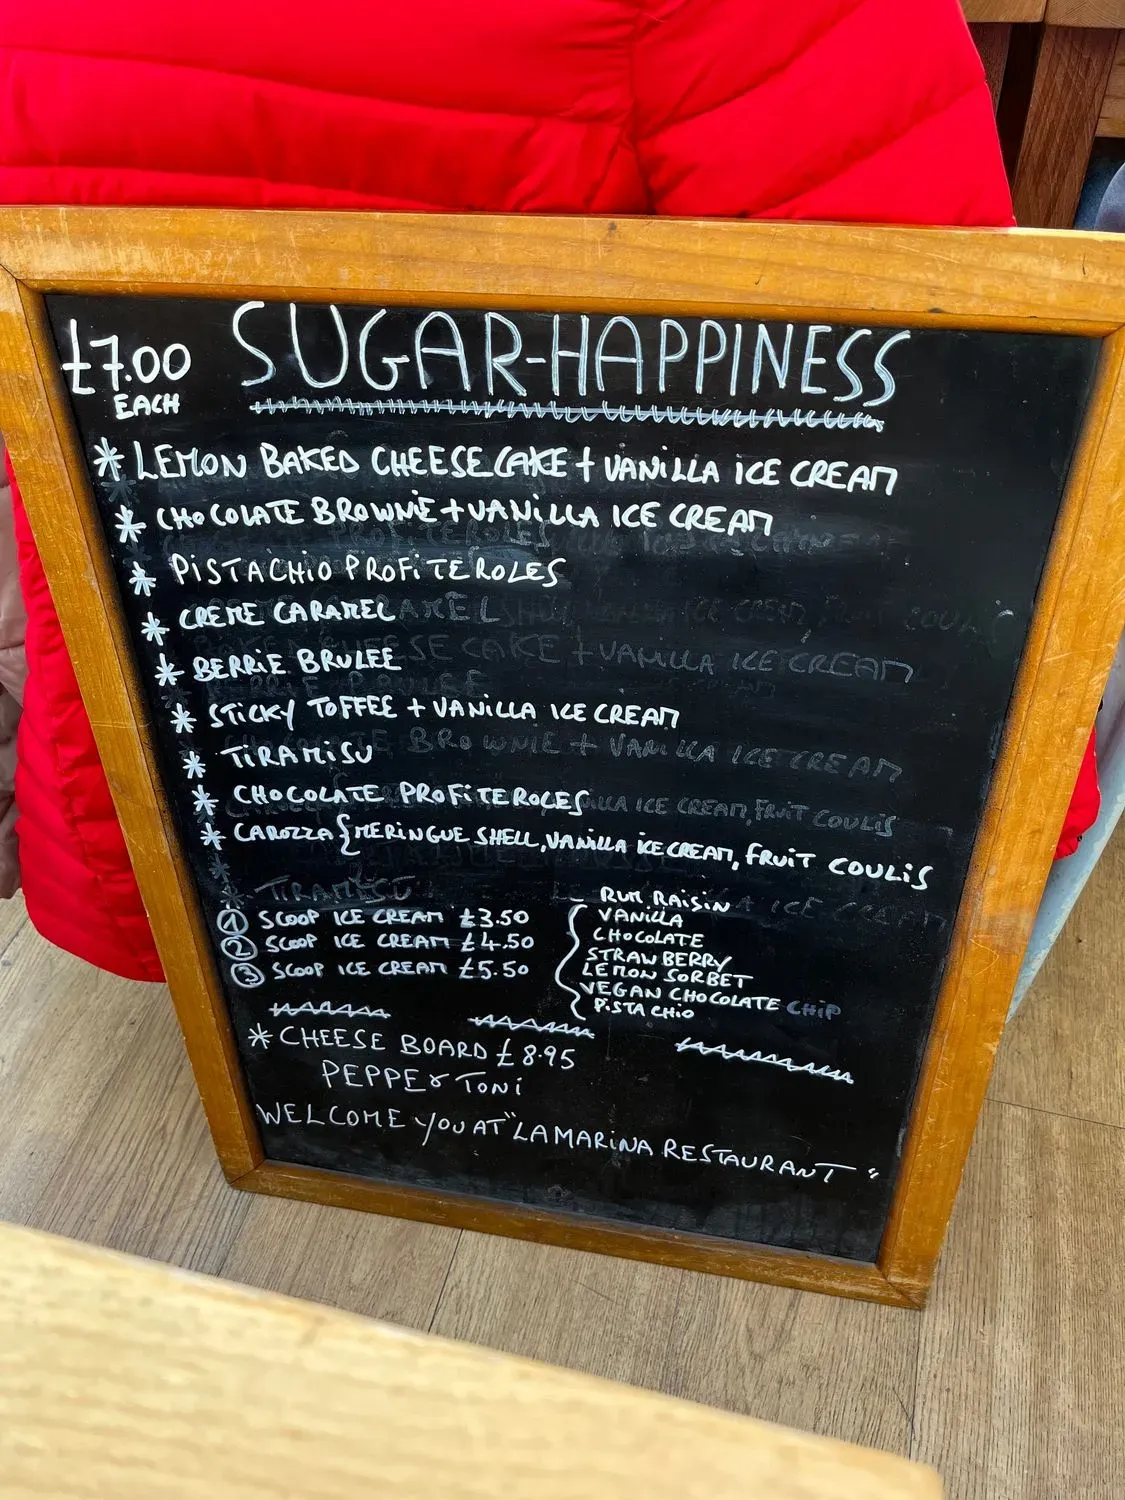 £7.00 EACH
SUGAR-HAPPINESS
* LEMON BAKED CHEESECAKE + VANILLA ICE CREAM
* CHOCOLATE BROWNIE + VANILLA ICE CREAM
* PISTACHIO PROFITEROLES
* CREME CARAMEL
* BERRIE BRULEE
* STICKY TOFFEE + VANILLA ICE CREAM
* TIRAMISU
* CHOCOLATE PROFITEROLES
* CAROZZA { MERINGUE SHELL, VANILLA ICE CREAM, FRUIT COULIS
① SCOOP ICE CREAM £3.50
② SCOOP ICE CREAM £4.50
③ SCOOP ICE CREAM £5.50
RUM RAISIN
VANILLA
CHOCOLATE
STRAWBERRY
LEMON SORBET
VEGAN CHOCOLATE CHIP
PISTACHIO
* CHEESE BOARD £8.95
WELCOME YOU AT "LA MARINA RESTAURANT"